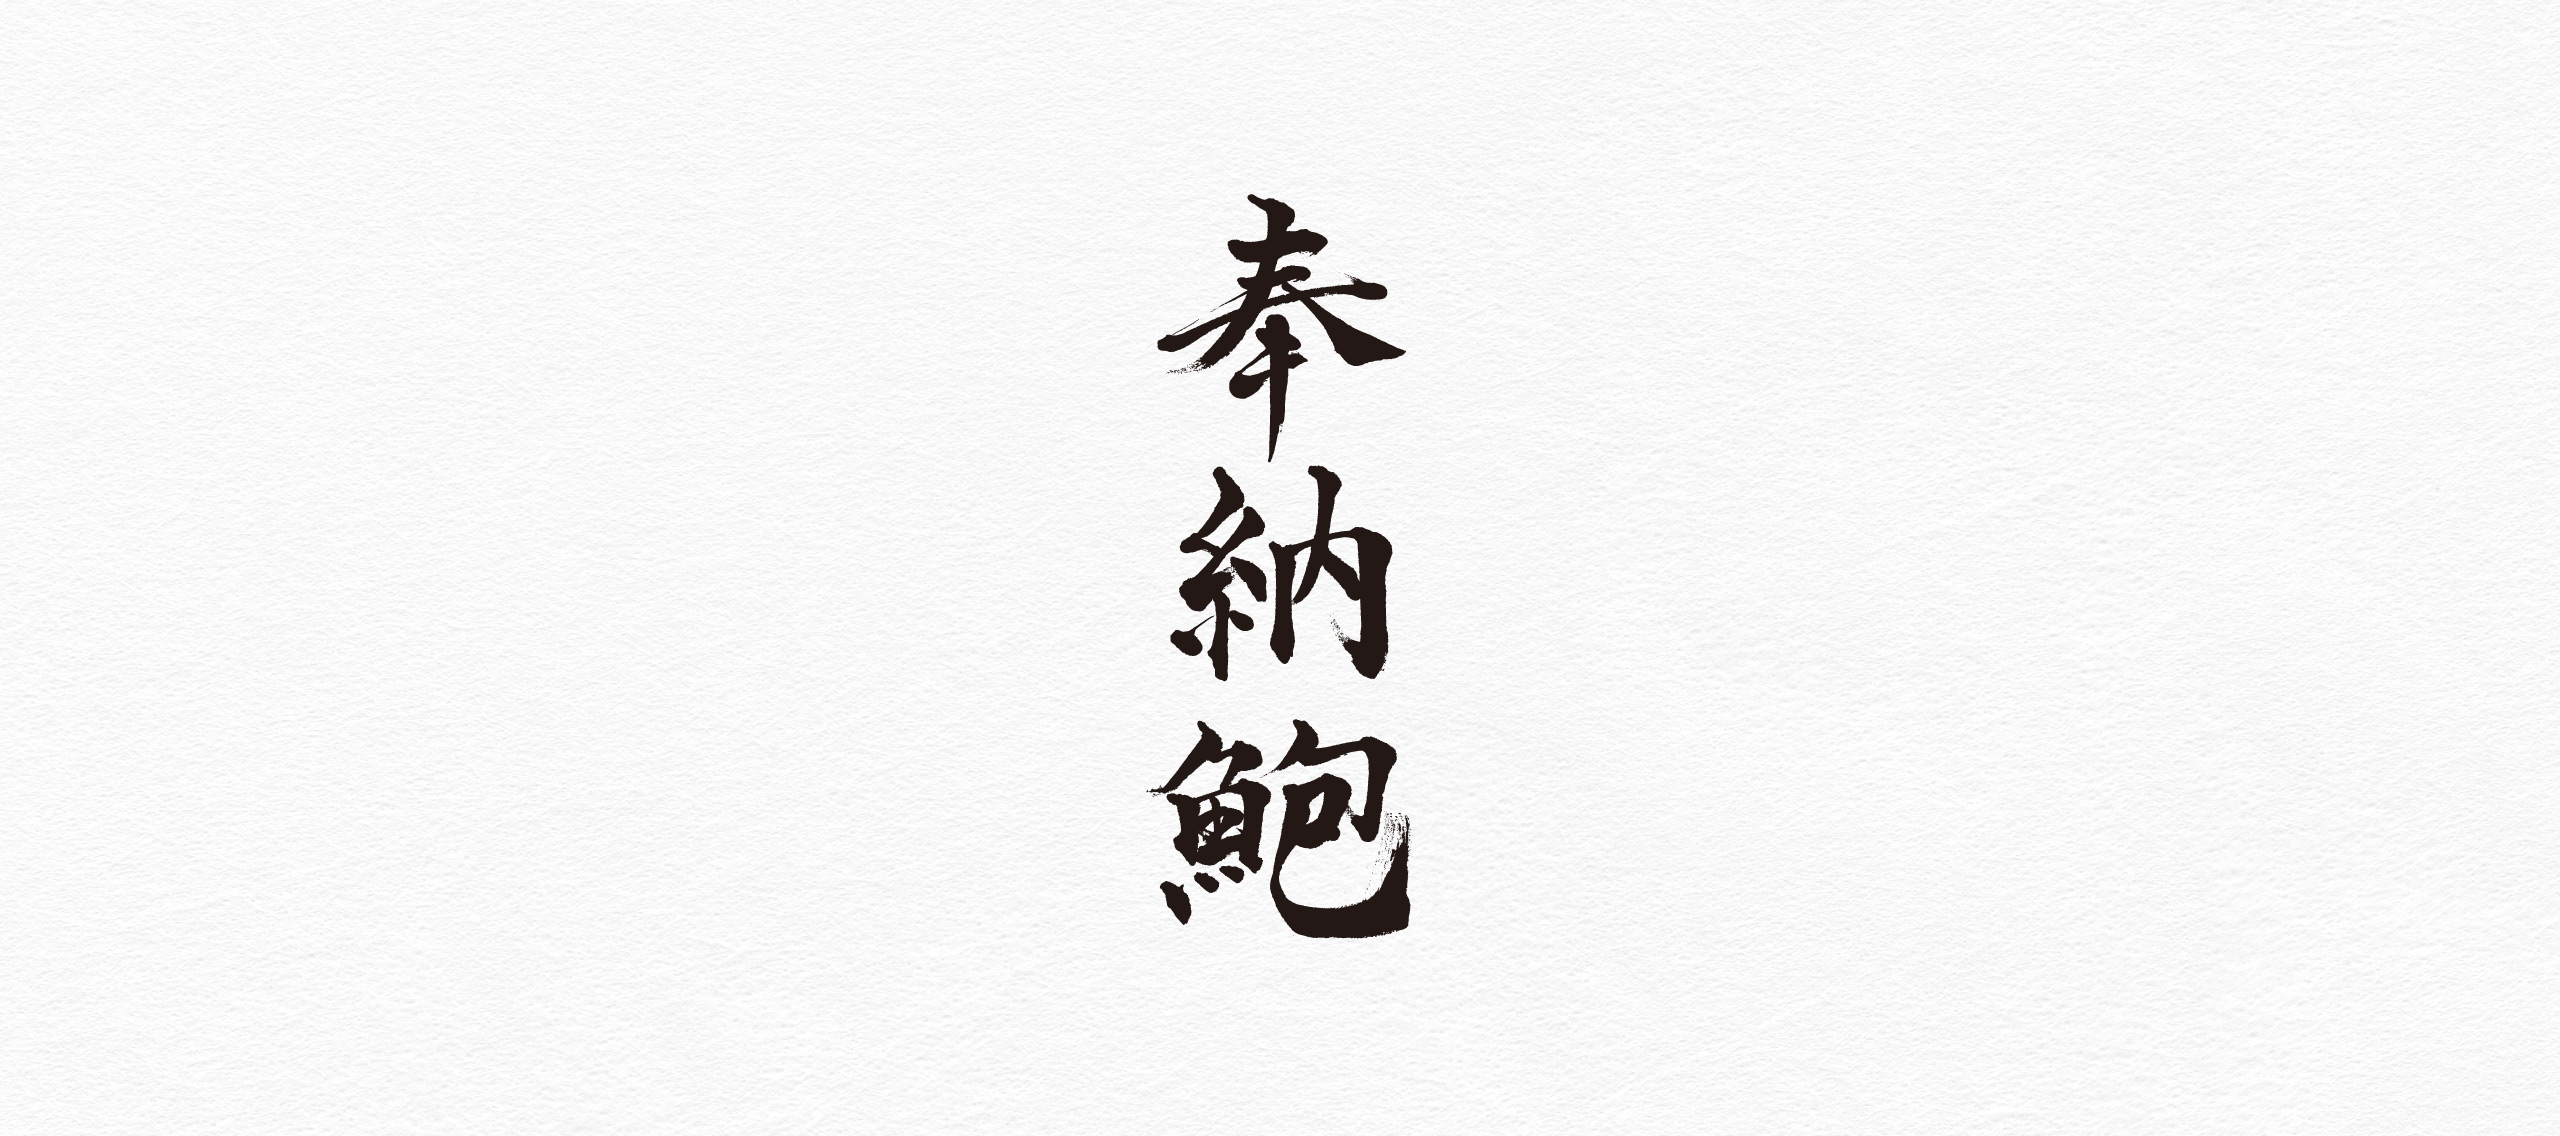 奉納鮑